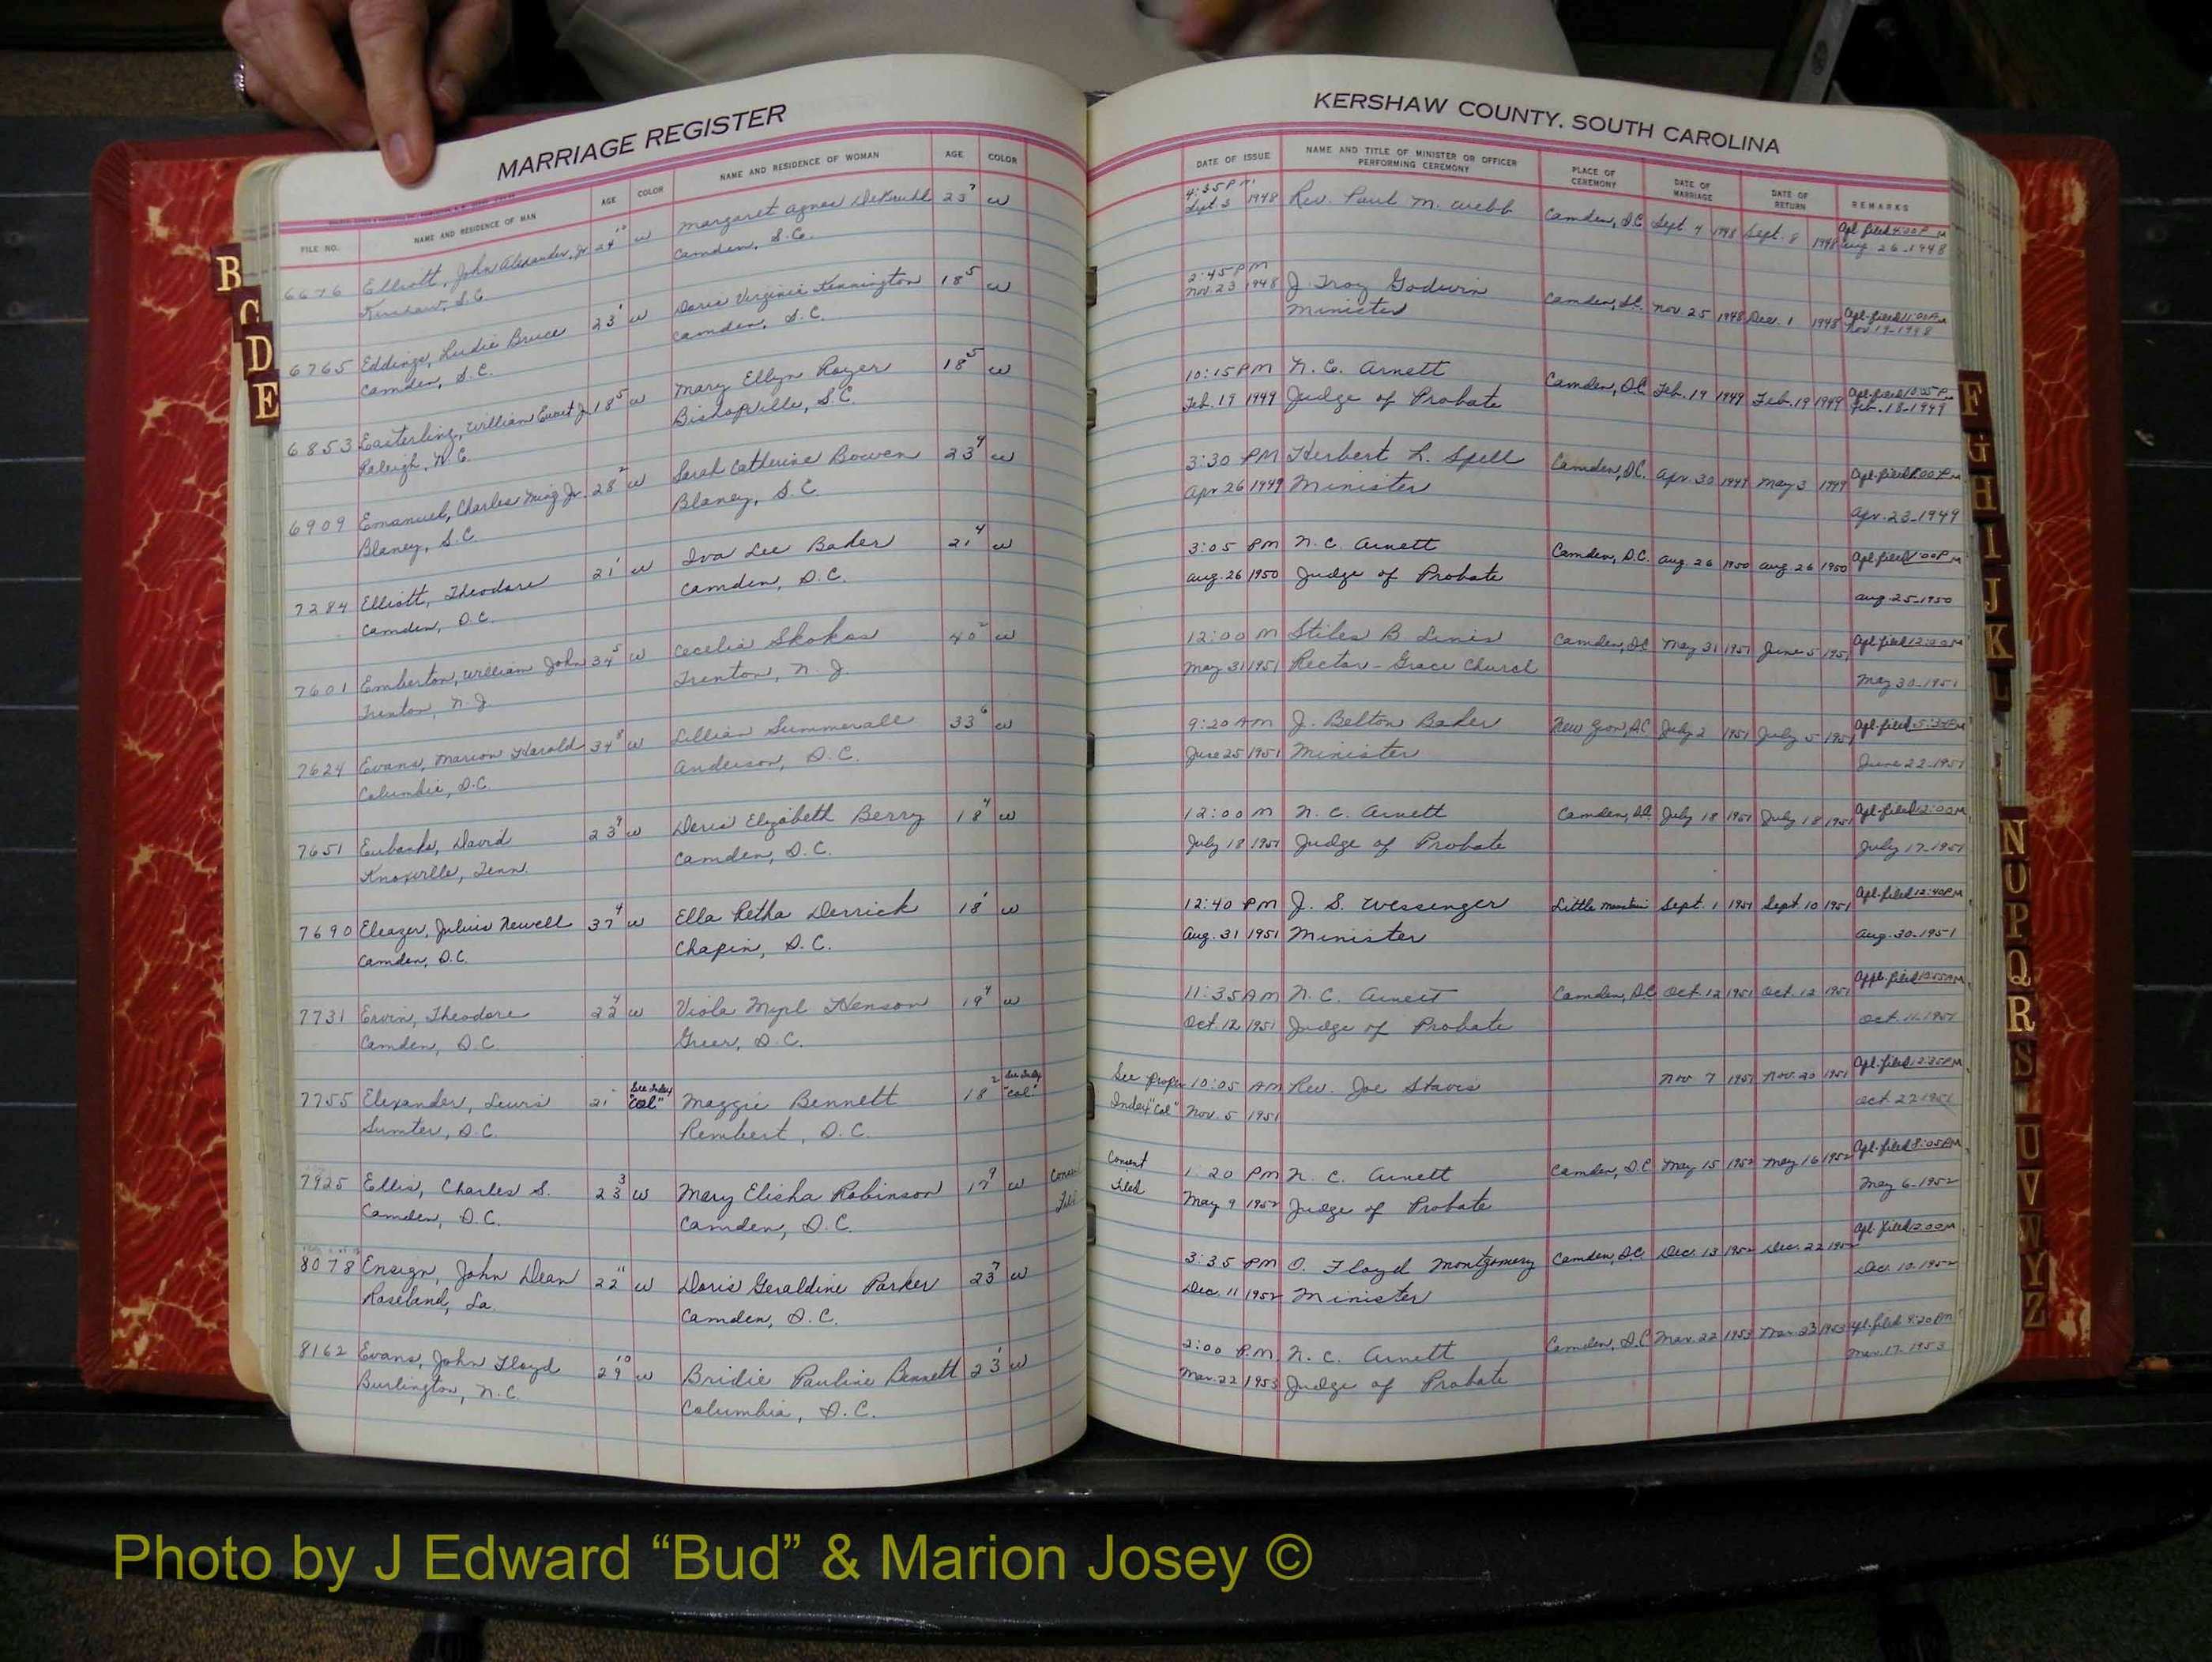 MARRIAGE REGISTER
FILE NO. NAME AND RESIDENCE OF MAN AGE COLOR NAME AND RESIDENCE OF WOMAN AGE COLOR
6676 Elliott, John Alexander, Jr. 24 10 w Margaret Agnes 23 7 w
Kershaw, S.C. Camden, S.C.
6765 Eddings, Ludie Bruce 23 1 w Doris Virginia Kennington 18 5 w
Camden, S.C. Camden, S.C.
6853 Easterling, William Jr. 18 5 w Mary Ellyn Royer 18 5 w
Raleigh, N.C. Bishopville, S.C.
6909 Emanuel, Charles Ming Jr. 28 2 w Sarah Catherine Bowen 23 4 w
Blaney, S.C. Blaney, S.C.
7284 Elliott, Theodore 21 1 w Iva Lee Baker 21 4 w
Camden, S.C. Camden, S.C.
7601 Emberton, William John 34 5 w Cecelia Skokos 40 2 w
Trenton, N.J. Trenton, N.J.
7624 Evans, Marion Harold 34 8 w Lillian Summerall 33 6 w
Columbia, S.C. Anderson, S.C.
7651 Eubanks, David 23 9 w Doris Elizabeth Berry 18 4 w
Knoxville, Tenn. Camden, S.C.
7690 Eleazer, Julius Newell 37 4 w Ella Retha Derrick 18 1 w
Camden, S.C. Chapin, S.C.
7731 Ervin, Theodore 22 4 w Viola Henson 19 4 w
Camden, S.C. Greer, S.C.
7755 Elexander, Lewis 21 See Index "Col" Maggie Bennett 18 2 See Index "Col"
Sumter, S.C. Rembert, S.C.
7925 Ellis, Charles S. 23 3 w Mary Elisha Robinson 17 9 w Consent
Camden, S.C. Camden, S.C. Filed
8078 Ensign, John Dean 22 11 w Doris Geraldine Parker 23 7 w
Roseland, La. Camden, S.C.
8162 Evans, John Floyd 29 10 w Bridie Pauline Bennett 23 1 w
Burlington, N.C. Columbia, S.C.
KERSHAW COUNTY, SOUTH CAROLINA
DATE OF ISSUE NAME AND TITLE OF MINISTER OR OFFICER PERFORMING CEREMONY PLACE OF CEREMONY DATE OF MARRIAGE DATE OF RETURN REMARKS
4:35 P.M. Rev. Paul M. Webb Camden, S.C. Sept 4 1948 Sept. 8 1948 Apl filed 4:20 P M
Sept 3 1948 Aug. 26-1948
2:45 PM J. Troy Godwin Camden, S.C. Nov 25 1948 Dec. 1 1948 Apl-filed 11:00 AM
Nov. 23 1948 Minister Nov. 19-1948
10:15 PM N. C. Arnett Camden, S.C. Feb. 19 1949 Feb. 19 1949 Apl-filed 10:05 P M
Feb. 19 1949 Judge of Probate Feb. 18-1949
3:30 PM Herbert L. Spell Camden, S.C. Apr. 30 1949 May 3 1949 Apl-filed
Apr 26 1949 Minister Apr. 23-1949
3:05 PM N. C. Arnett Camden, S.C. Aug. 26 1950 Aug. 26 1950 Apl filed 1:00 P M
Aug. 26 1950 Judge of Probate Aug-25-1950
12:00 M Stiles B. Lines Camden, S.C. May 31 1951 June 5 1951 Apl-filed
May 31 1951 Rector - Grace Church May 30-1951
9:20 AM J. Belton Baker New Zion, S.C. July 2 1951 July 5 1951 Apl-filed
June 25 1951 Minister June 22-1951
12:00 M N. C. Arnett Camden, S.C. July 18 1951 July 18 1951 Apl-filed 12:00 M
July 18 1951 Judge of Probate July 17-1951
12:40 PM J. S. Wessinger Little Mountain Sept. 1 1951 Sept 10 1951 Apl-filed 12:40 P M
Aug. 31 1951 Minister Aug. 30-1951
11:35 AM N. C. Arnett Camden, S.C. Oct. 12 1951 Oct. 12 1951 Appl-filed
Oct. 12 1951 Judge of Probate Oct. 11-1951
See proper 10:05 AM Rev. Joe Nov 7 1951 Nov. 20 1951 Apl-filed 12:35 PM
Index "Col" Nov. 5 1951 Oct. 27-1951
Consent 1:20 PM N. C. Arnett Camden, S.C. May 15 1952 May 16 1952 Apl-filed 8:05 AM
Filed May 9 1952 Judge of Probate May 6-1952
3:35 PM O. Floyd Montgomery Camden, S.C. Dec. 13 1952 Dec. 22 1952 Apl-filed
Dec. 11 1952 Minister Dec. 10-1952
2:00 P.M. N. C. Arnett Camden, S.C. Mar. 22 1953 Mar. 23 1953 Apl-filed 9:20 AM
Mar. 22 1953 Judge of Probate Mar. 17-1953
B
C
D
E
F
G
H
I
J
K
L
N
O
P
Q
R
S
U
V
W
Y
Z
Photo by J Edward “Bud” & Marion Josey ©